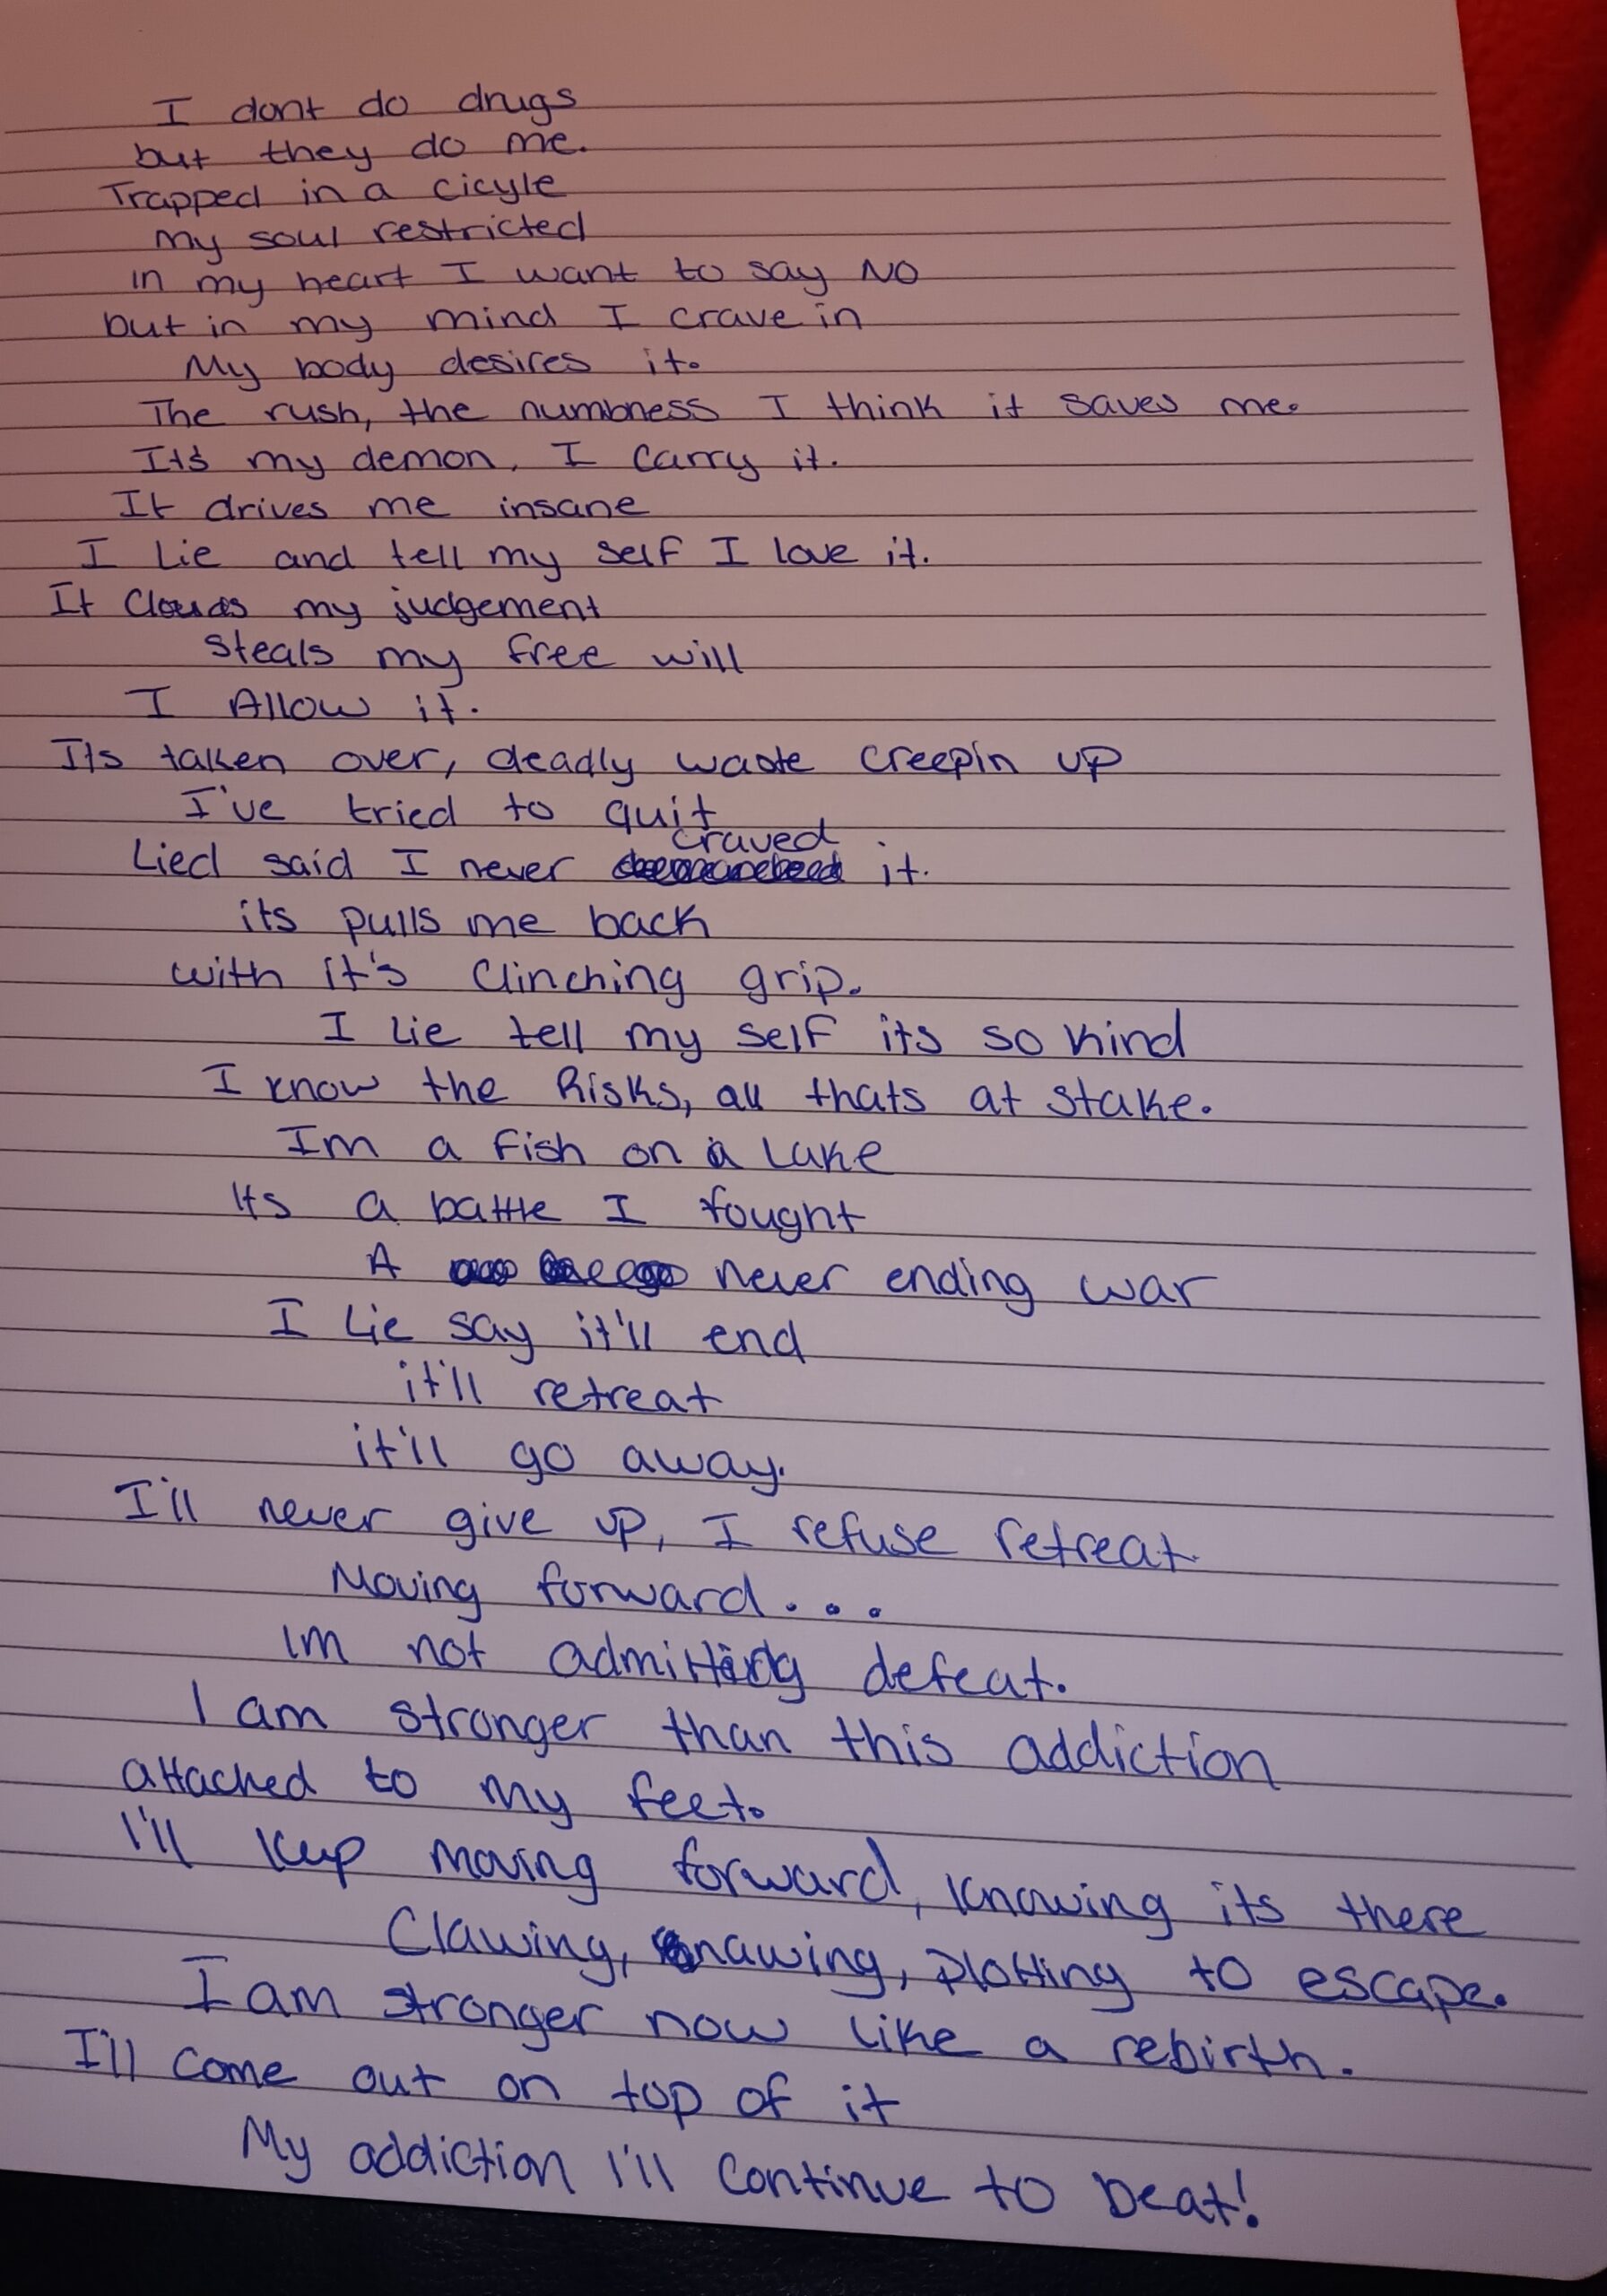 I dont do drugs
but they do me.
Trapped in a cicyle
my soul restricted
in my heart I want to say NO
but in my mind I crave in
My body desires it.
The rush, the numbness I think it saves me.
It's my demon, I carry it.
It drives me insane
I Lie and tell my self I love it.
It Clouds my judgement
steals my free will
I Allow it.
Its taken over, deadly waste creepin up
I've tried to quit
craved
Lied said I never it.
its pulls me back
with it's Clinching grip.
I lie tell my self its so kind
I know the Risks, all thats at stake.
Im a fish on a Lake
Its a battle I fought
A never ending war
I Lie say it'll end
it'll retreat
it'll go away.
I'll never give up, I refuse retreat.
Moving forward...
Im not admitting defeat.
I am stronger than this addiction
attached to my feet.
I'll keep moving forward, knowing its there
Clawing, gnawing, plotting to escape.
I am stronger now like a rebirth.
I'll come out on top of it
My addiction I'll continue to beat!